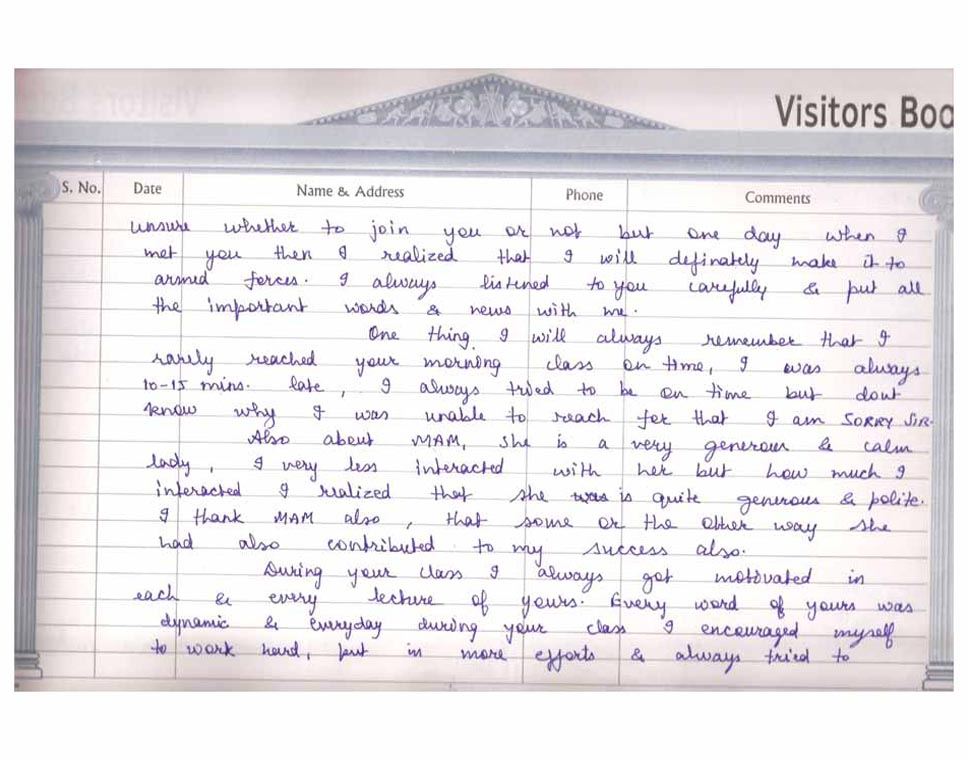 Visitors Boo
S. No. Date Name & Address Phone Comments
unsure whether to join you or not but one day when I
met you then I realized that I will definately make it to
armed forces. I always listened to you carefully & put all
the important words & news with me.
One thing I will always remember that I
rarely reached your morning class on time, I was always
10-15 mins. late, I always tried to be on time but dont
know why I was unable to reach for that I am SORRY SIR.
Also about MAM, she is a very generous & calm
lady, I very less interacted with her but how much I
interacted I realized that she was is quite generous & polite.
I thank MAM also, that some or the other way she
had also contributed to my success also.
During your class I always got motivated in
each & every lecture of yours. Every word of yours was
dynamic & everyday during your class I encouraged myself
to work hard, put in more efforts & always tried to